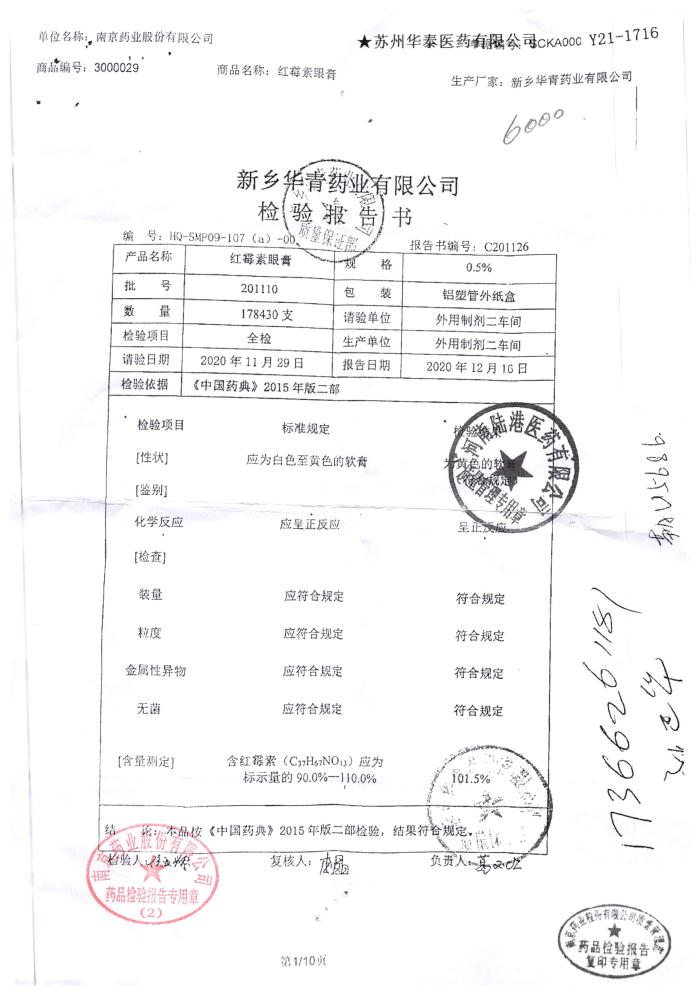 单位名称：南京药业股份有限公司
★苏州华泰医药有限公司 SCKA000 Y21-1716
商品编号：3000029 商品名称：红霉素眼膏 生产厂家：新乡华青药业有限公司
6000
新乡华青药业有限公司
检验报告书
质量保证部
编 号：HQ-SMP09-107（a）-00 报告书编号：C201126
产品名称 红霉素眼膏 规 格 0.5%
批 号 201110 包 装 铝塑管外纸盒
数 量 178430 支 请验单位 外用制剂二车间
检验项目 全检 生产单位 外用制剂二车间
请验日期 2020 年 11 月 29 日 报告日期 2020 年 12 月 16 日
检验依据 《中国药典》2015 年版二部
检验项目 标准规定 检验
[性状] 应为白色至黄色的软膏 为黄色的软膏
[鉴别] 符合规定
河南陆港医药有限公司
质量管理专用章
化学反应 应呈正反应 呈正反应
[检查]
装量 应符合规定 符合规定
粒度 应符合规定 符合规定
金属性异物 应符合规定 符合规定
无菌 应符合规定 符合规定
[含量测定] 含红霉素（C37H67NO13）应为 101.5%
标示量的 90.0%—110.0%
结 论：本品按《中国药典》2015 年版二部检验，结果符合规定。
检验人： 复核人： 负责人：
南京药业股份有限公司
药品检验报告专用章
（2）
17366261181
南京药业股份有限公司质量管理部
药品检验报告
复印专用章
第1/10页